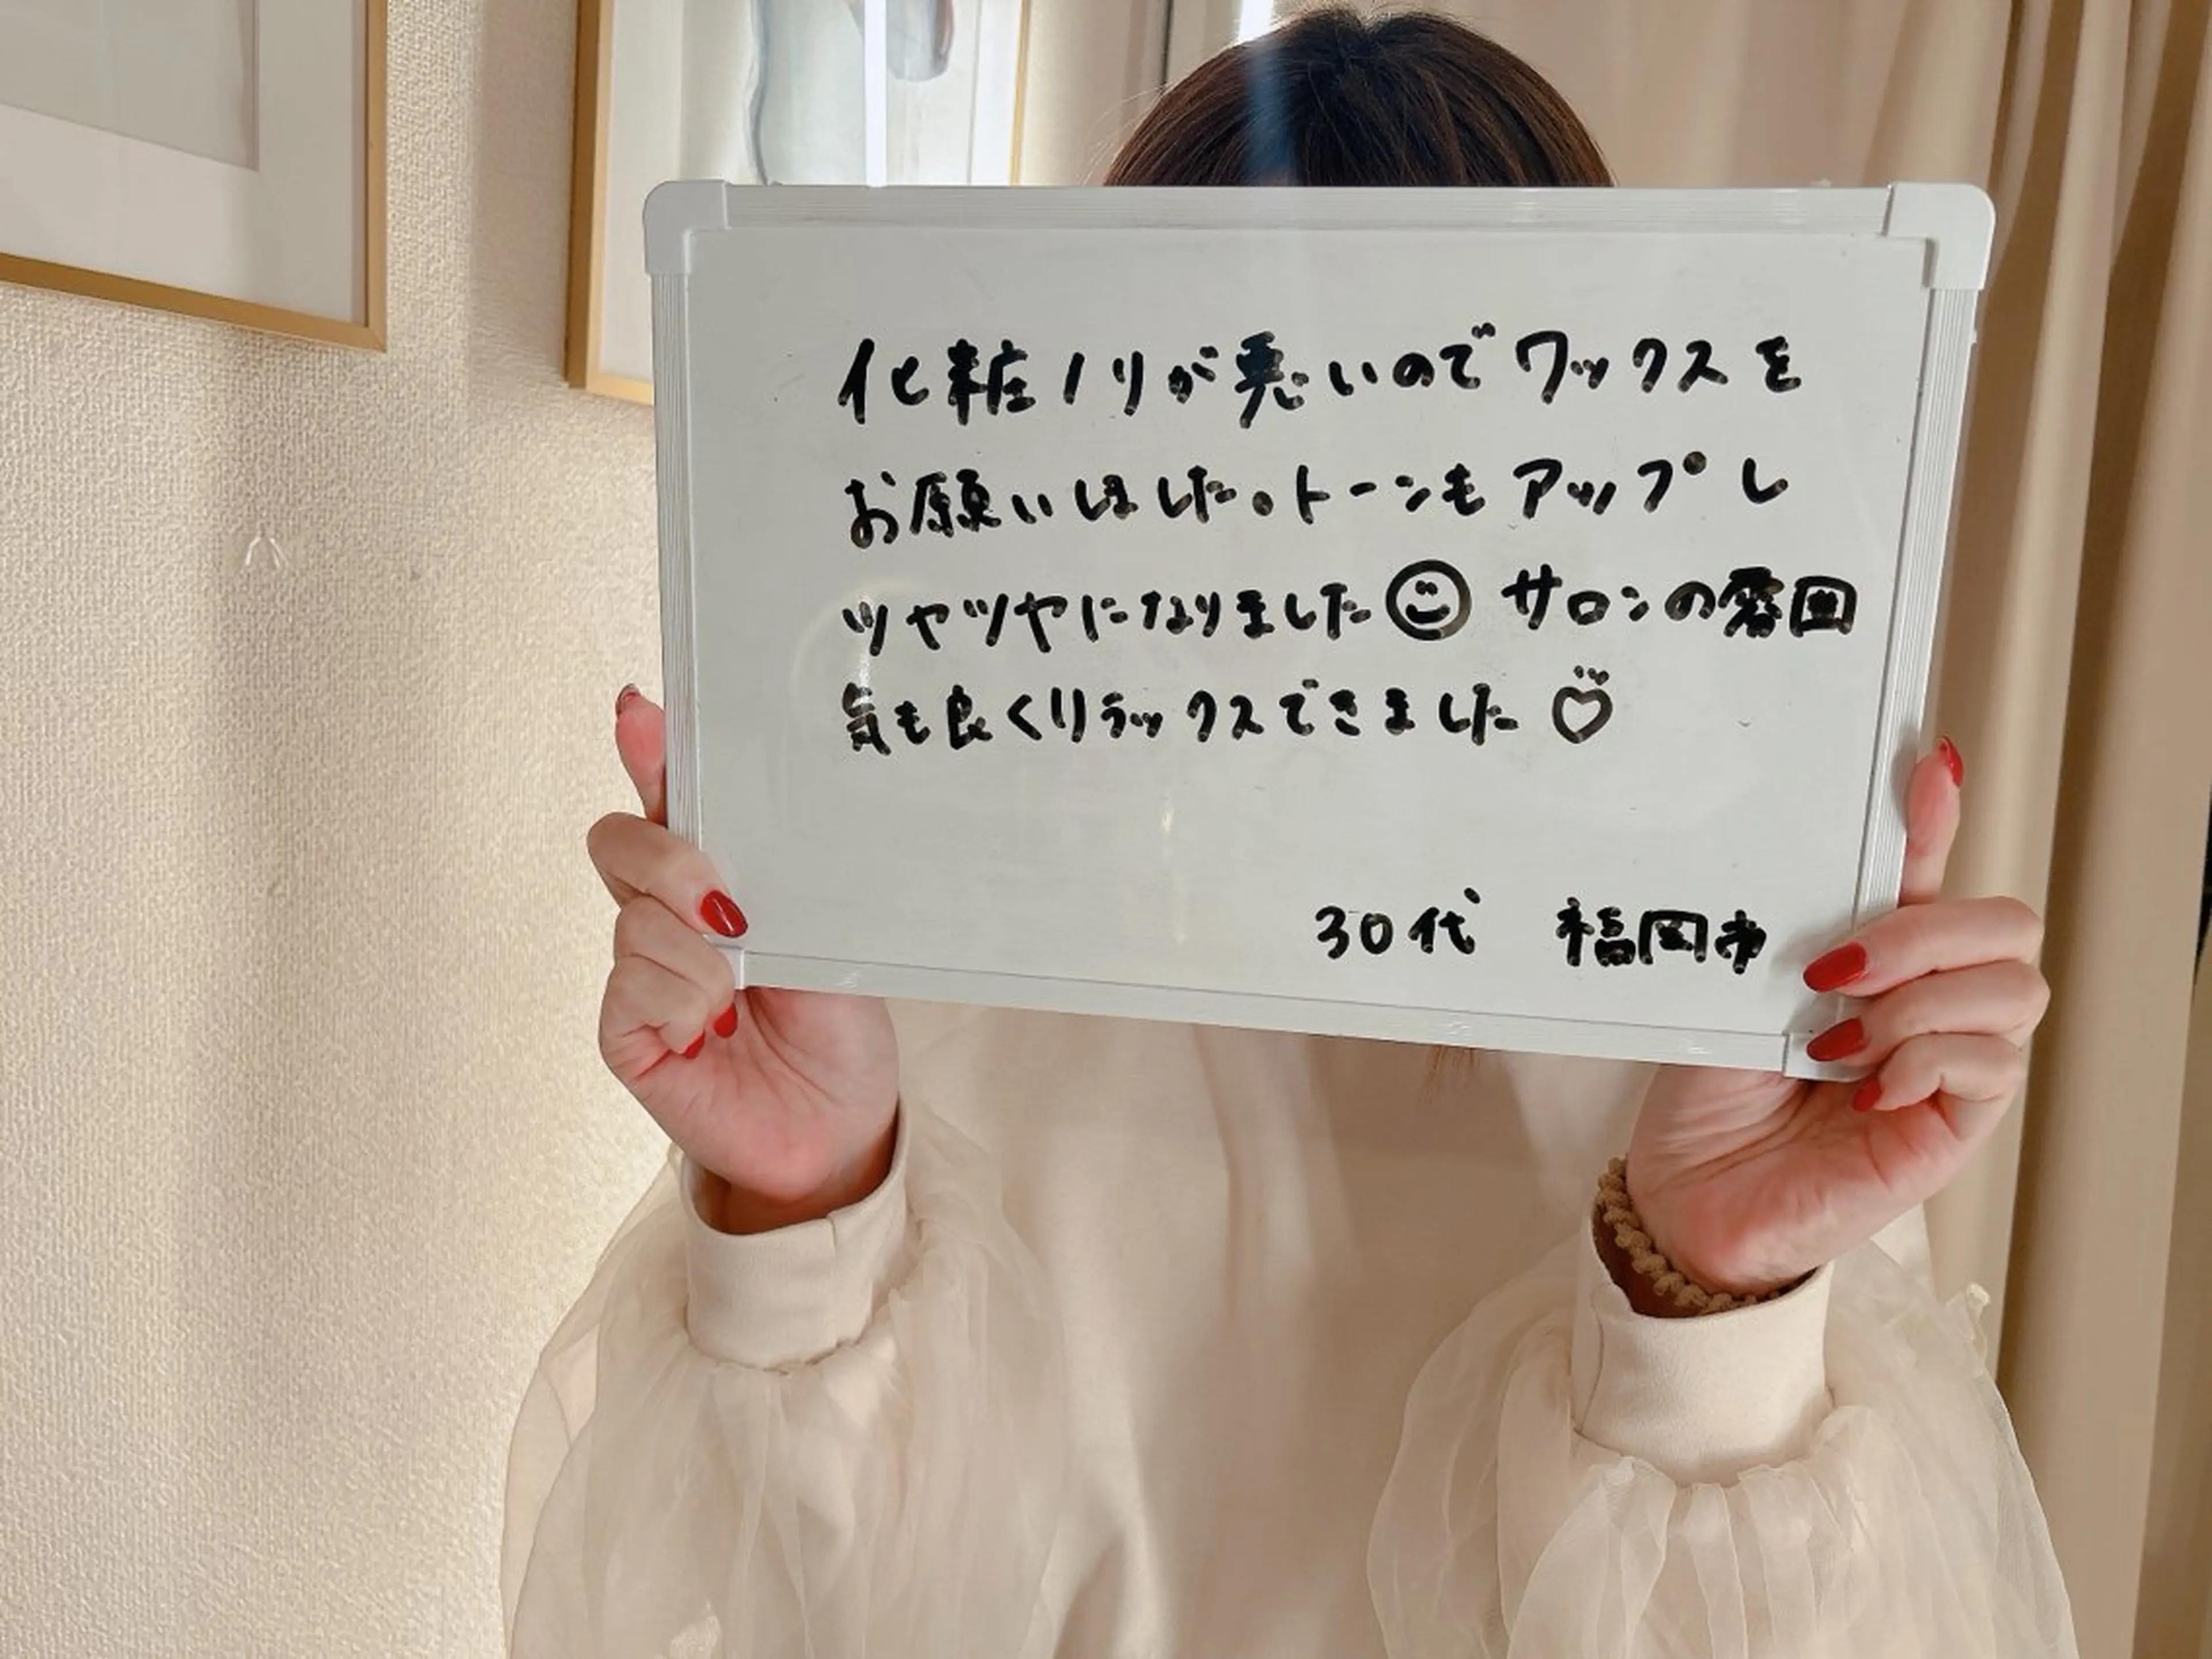 化粧ノリが悪いのでワックスを
お願いしました。トーンもアップし
ツヤツヤになりました☺ サロンの雰囲
気も良くリラックスできました♡
30代 福岡市